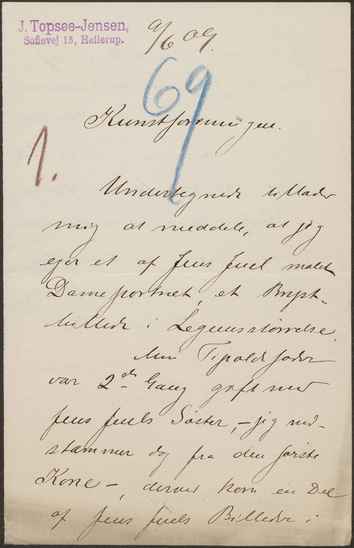 J. Topsøe-Jensen,
Sofievej 13, Hellerup.
9/6 09.
69
Kunstforeningen.
1.
Undertegnede tillader
mig at meddele, at jeg
ejer et af Jens Juel malet
Dameportræt, et Bryst-
billede i Legemsstørrelse.
Min Tipoldefader
var 2den Gang gift med
Jens Juels Søster, – jeg ned-
stammer dog fra den første
Kone –, derved kom en Del
af Jens Juels Billeder i